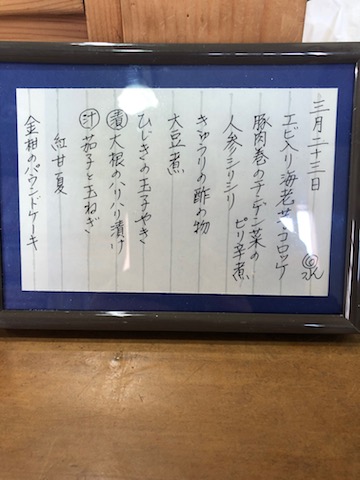 三月二十三日 ㊌
エビ入り海老芋コロッケ
豚肉巻のチンゲン菜の
ピリ辛煮
人参シリシリ
きゅうりの酢の物
大豆煮
ひじきの玉子やき
漬 大根のハリハリ漬け
汁 茄子と玉ねぎ
紅甘夏
金柑のパウンドケーキ